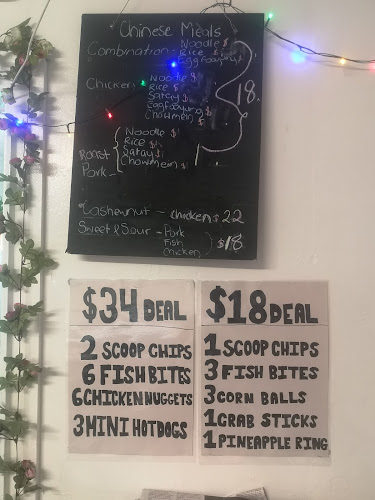 Chinese Meals
Combination - Noodle $
Rice $
Eggfooyung $
Chicken Noodle $
Rice $
Satay $
Eggfooyung $
Chowmein $
18.
Roast Pork - Noodle $
Rice $
Satay $
Chowmein $
Cashewnut - chicken $ 22
Sweet & Sour - Pork
Fish
Chicken
$18
$34 DEAL
2 SCOOP CHIPS
6 FISH BITES
6 CHICKEN NUGGETS
3 MINI HOTDOGS
$18 DEAL
1 SCOOP CHIPS
3 FISH BITES
3 CORN BALLS
1 CRAB STICKS
1 PINEAPPLE RING